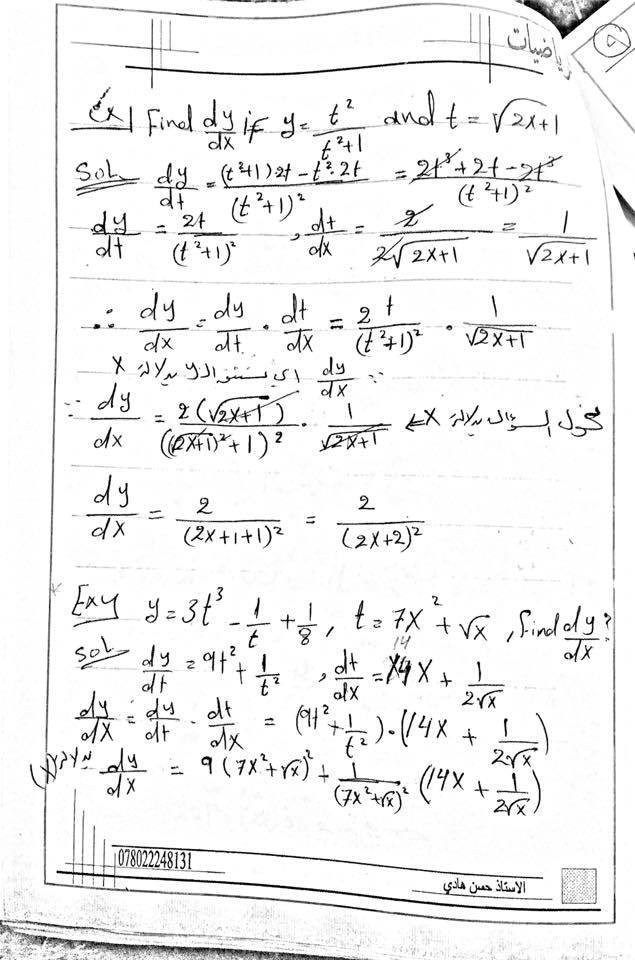 رياضيات
Ex1 Find dy/dx if y = t²/(t²+1) and t = √(2x+1)
Sol dy/dt = ((t²+1)2t - t²·2t)/(t²+1)² = (2t³+2t-2t³)/(t²+1)²
dy/dt = 2t/(t²+1)² , dt/dx = 2/(2√(2x+1)) = 1/√(2x+1)
∴ dy/dx = dy/dt · dt/dx = 2t/(t²+1)² · 1/√(2x+1)
∵ dy/dx اي بدلالة x
∵ dy/dx = 2(√(2x+1))/((√(2x+1))²+1)² · 1/√(2x+1) ⇐ نحول السؤال بدلالة x
dy/dx = 2/(2x+1+1)² = 2/(2x+2)²
Ex4 y = 3t³ - 1/t + 1/8 , t = 7x² + √x , find dy/dx ?
Sol dy/dt = 9t² + 1/t² , dt/dx = 14x + 1/(2√x)
dy/dx = dy/dt · dt/dx = (9t² + 1/t²)·(14x + 1/(2√x))
بدلالة (x) dy/dx = 9(7x²+√x)² + 1/(7x²+√x)² (14x + 1/(2√x))
078022248131
الاستاذ حسن هادي